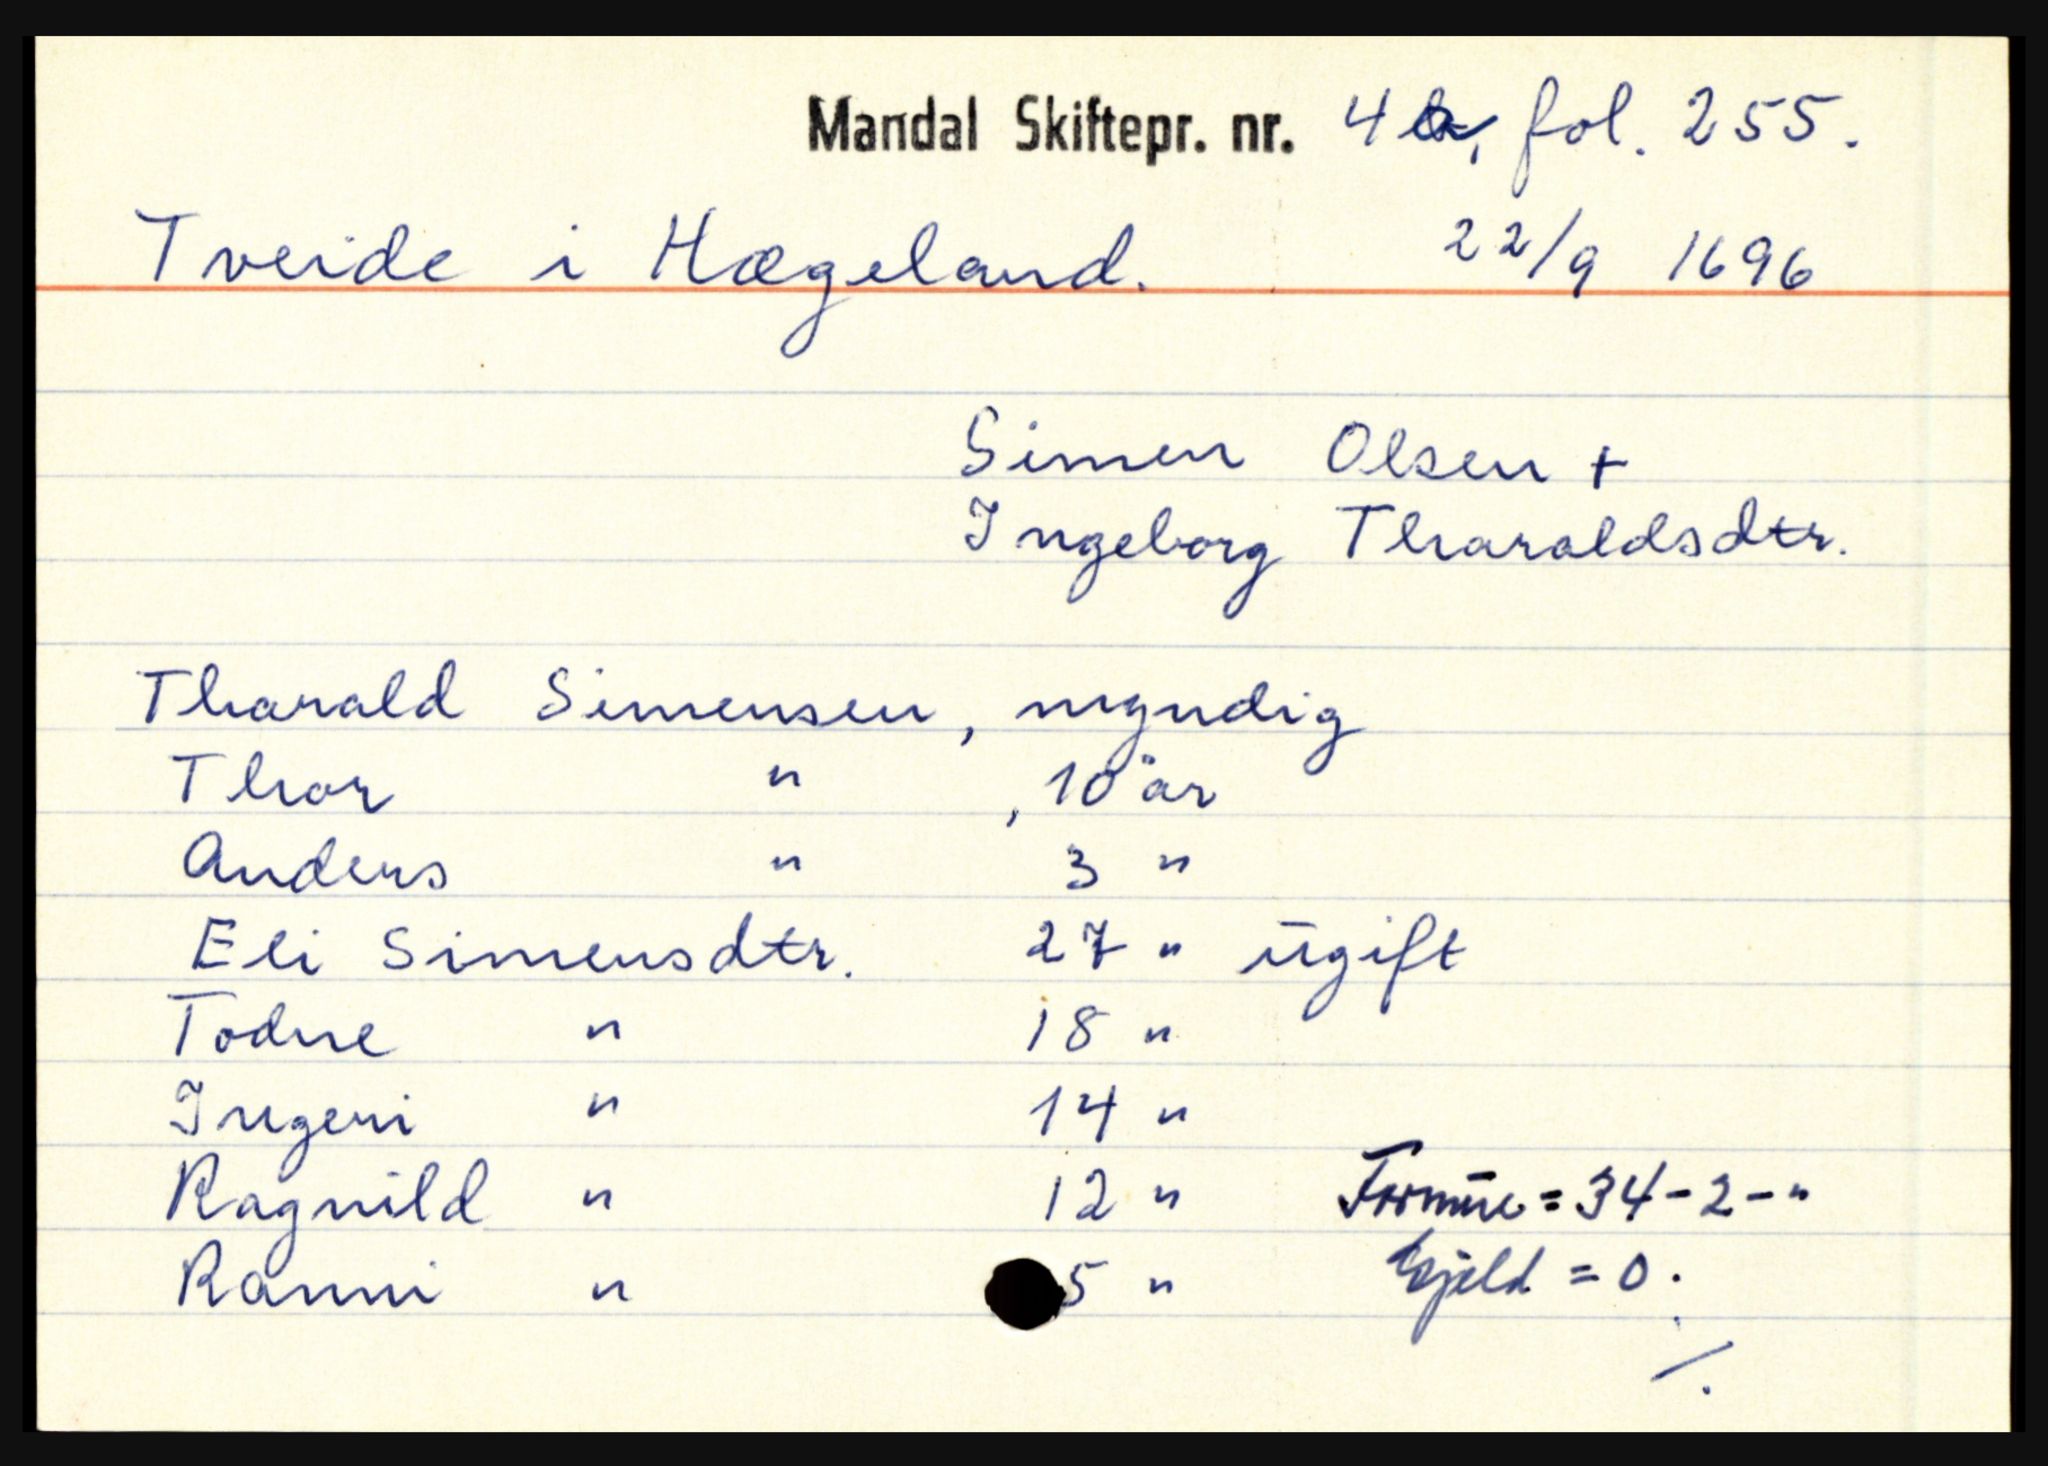 Mandal Skiftepr. nr. 4 b, fol. 255.
Tveide i Hægeland. 22/9 1696
Simen Olsen +
Ingeborg Tharaldsdtr.
Tharald Simensen, myndig
Thor " , 10 år
Anders " 3 "
Eli Simensdtr. 27 " ugift
Todne " 18 "
Ingeri " 14 "
Ragnild " 12 " Formue = 34-2-"
Ranni " 5 " Gjeld = 0.